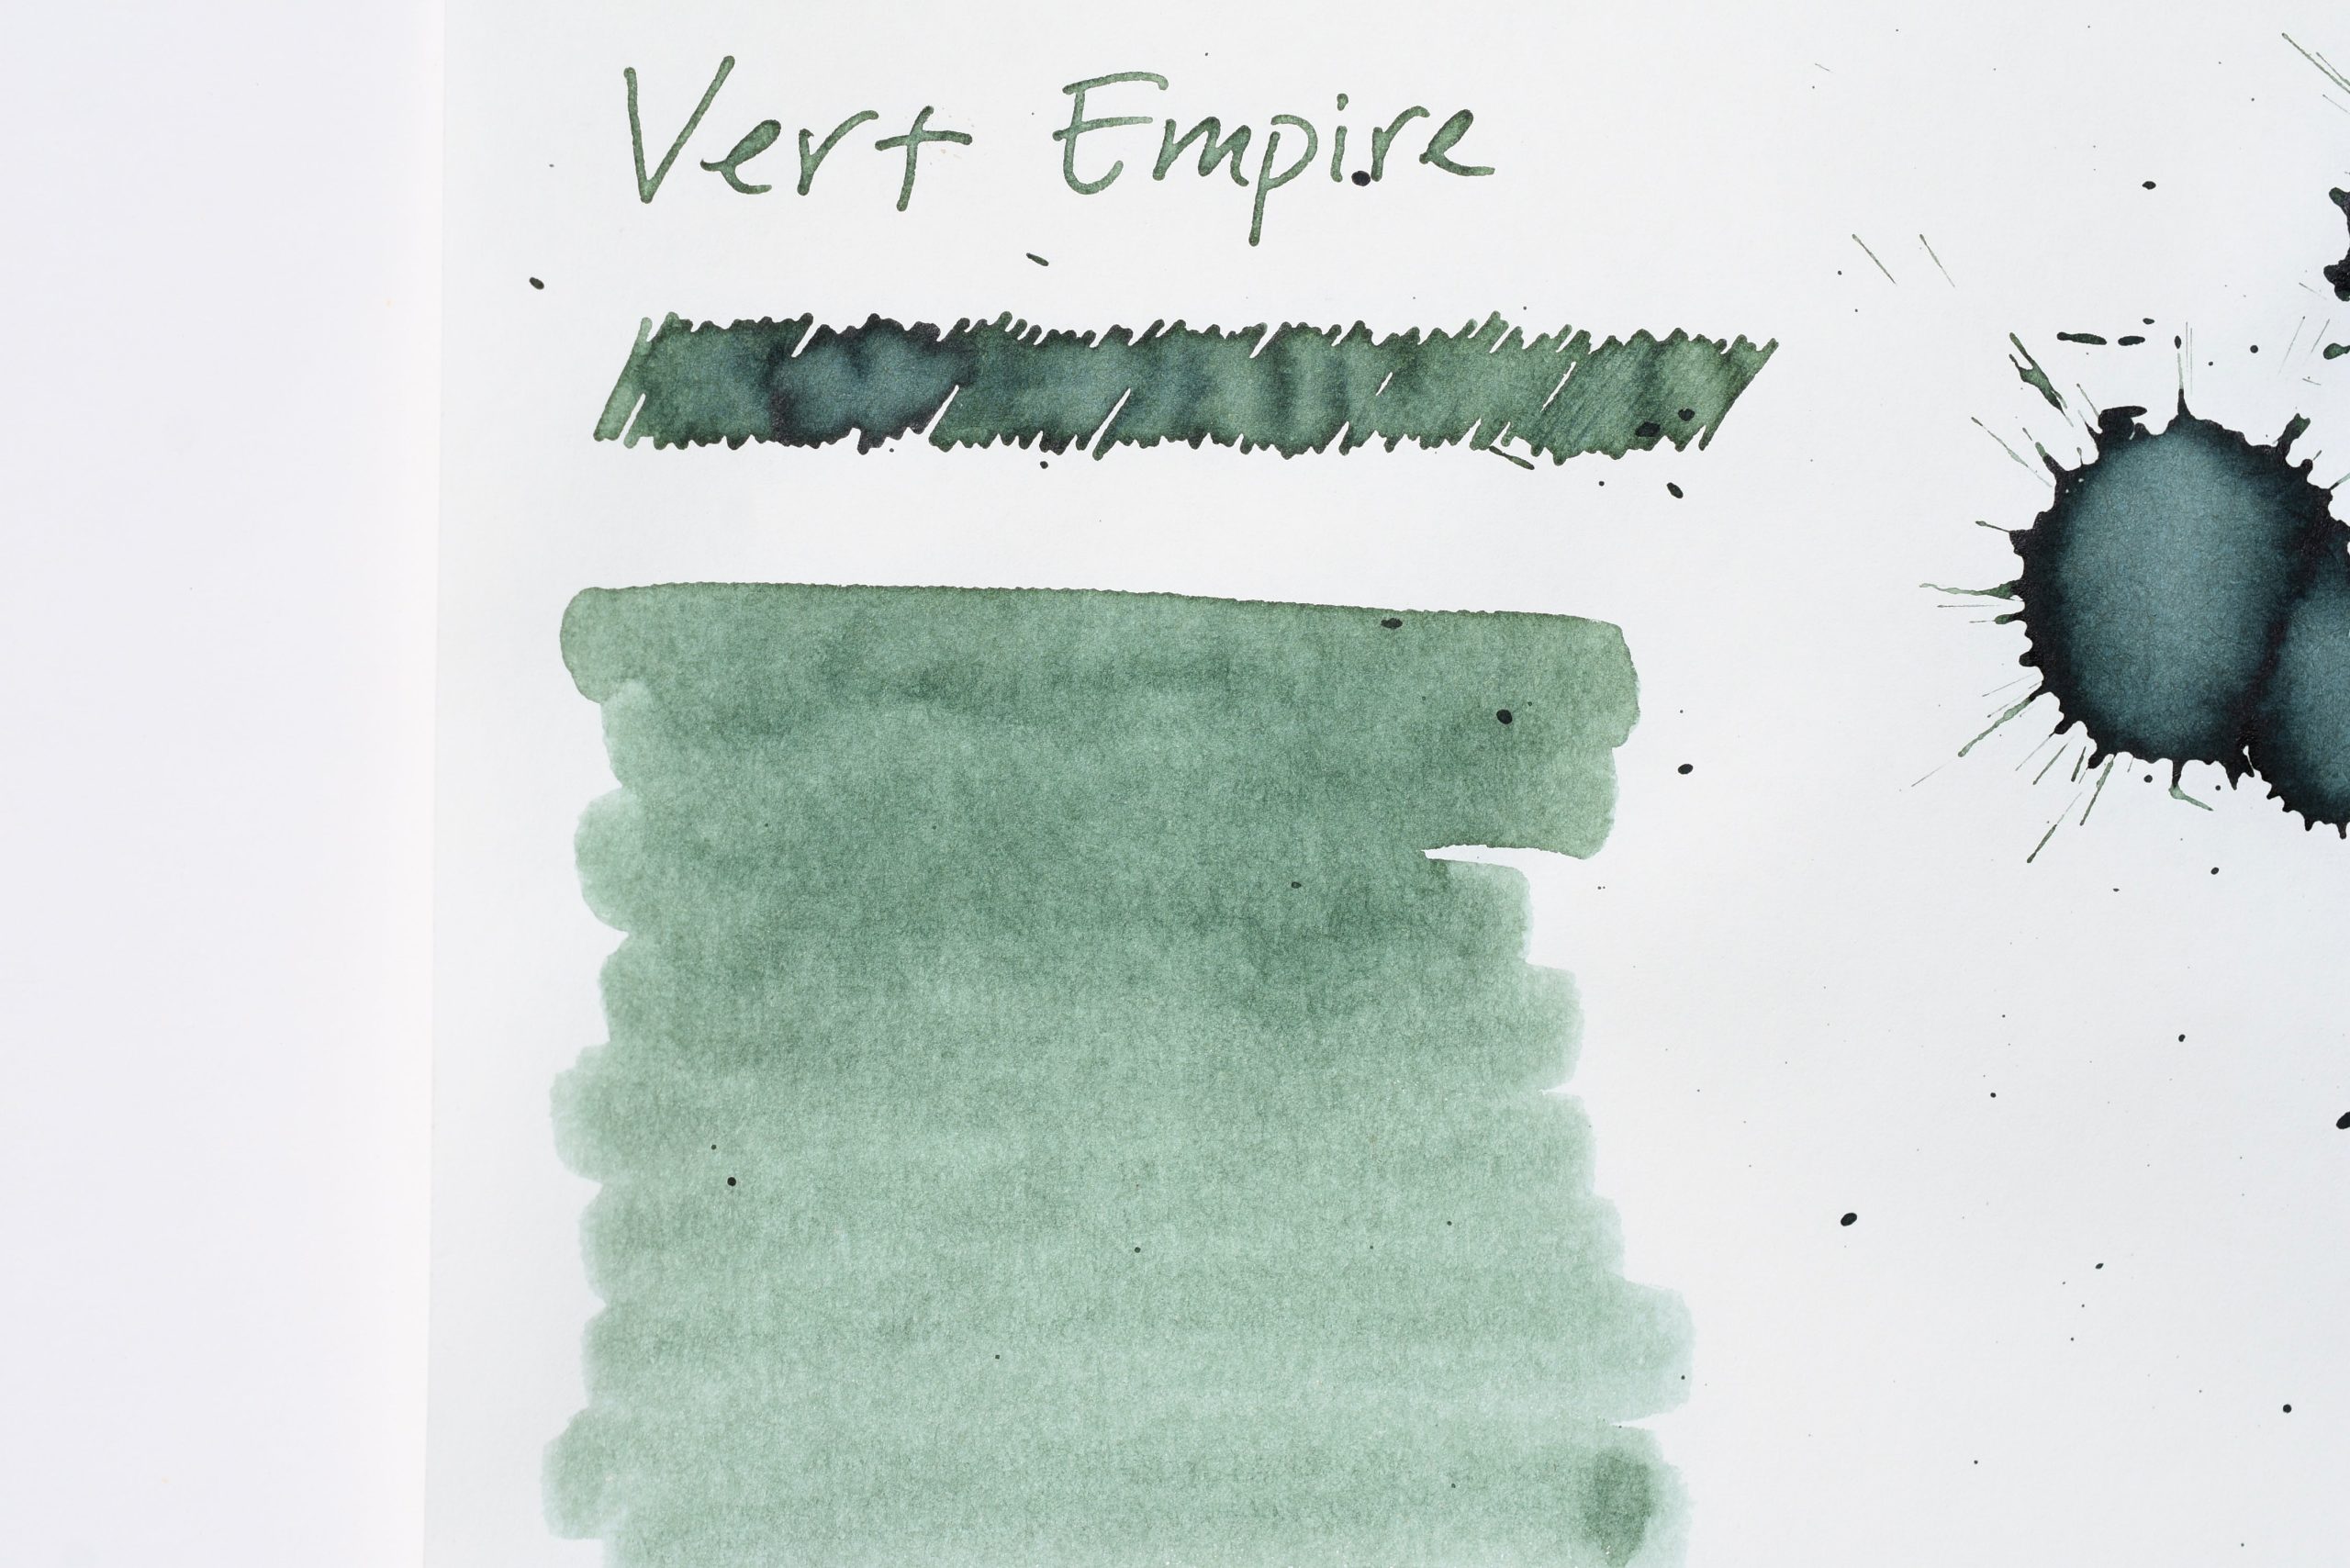 Vert Empire